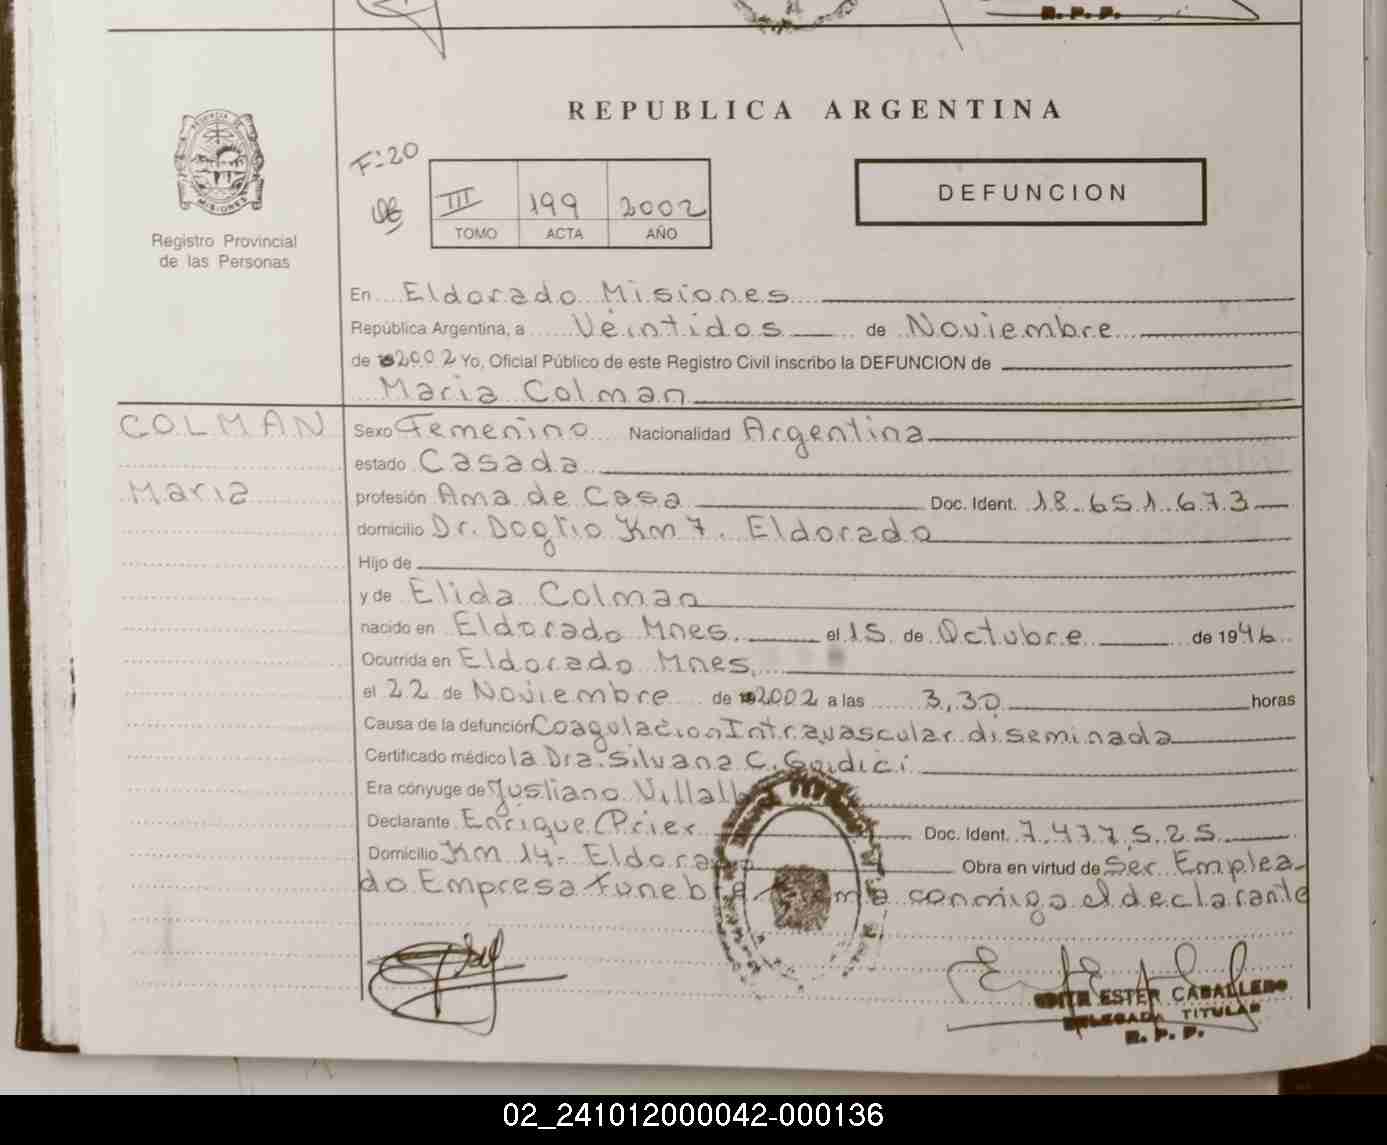 R. P. P.
REPUBLICA ARGENTINA
MISIONES
Registro Provincial
de las Personas
F:20
III 199 2002
TOMO ACTA AÑO
DEFUNCION
En Eldorado Misiones
República Argentina, a Veintidos de Noviembre
de 2002 Yo, Oficial Público de este Registro Civil inscribo la DEFUNCION de
Maria Colman
COLMAN
Maria
Sexo Femenino Nacionalidad Argentina
estado Casada
profesión Ama de Casa Doc. Ident. 18.651.673
domicilio Dr. Doglio Km 7. Eldorado
Hijo de
y de Elida Colman
nacido en Eldorado Mnes. el 15 de Octubre de 1946
Ocurrida en Eldorado Mnes.
el 22 de Noviembre de 2002 a las 3,30 horas
Causa de la defunción Coagulacion Intravascular diseminada
Certificado médico la Dra. Silvana C. Guidici
Era cónyuge de Justiano
Declarante Enrique Prier Doc. Ident. 7.477.525
Domicilio Km 14- Eldorado Obra en virtud de Ser Emplea-
do Empresa Funebre conmigo el declarante
ESTER CABALLERO
DELEGADA TITULAR
R. P. P.
02_241012000042-000136